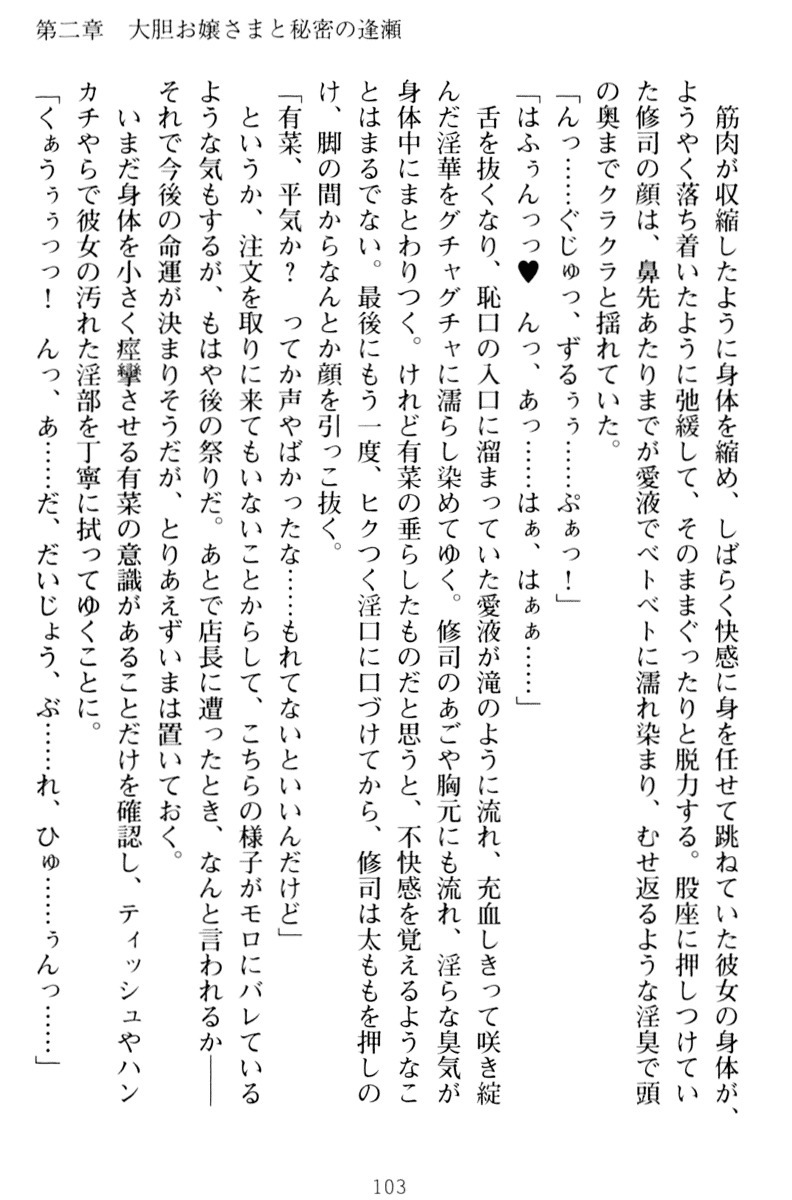 第二章　大胆お嬢さまと秘密の逢瀬
　筋肉が収縮したように身体を縮め、しばらく快感に身を任せて跳ねていた彼女の身体が、
ようやく落ち着いたように弛緩して、そのままぐったりと脱力する。股座に押しつけてい
た修司の顔は、鼻先あたりまでが愛液でベトベトに濡れ染まり、むせ返るような淫臭で頭
の奥までクラクラと揺れていた。
「んっ……ぐじゅっ、ずるぅぅ……ぷぁっ！」
「はふぅんっっ♥　んっ、あっ……はぁ、はぁぁ……」
　舌を抜くなり、恥口の入口に溜まっていた愛液が滝のように流れ、充血しきって咲き綻
んだ淫華をグチャグチャに濡らし染めてゆく。修司のあごや胸元にも流れ、淫らな臭気が
身体中にまとわりつく。けれど有菜の垂らしたものだと思うと、不快感を覚えるようなこ
とはまるでない。最後にもう一度、ヒクつく淫口に口づけてから、修司は太ももを押しの
け、脚の間からなんとか顔を引っこ抜く。
「有菜、平気か？　ってか声やばかったな……もれてないといいんだけど」
　というか、注文を取りに来てもいないことからして、こちらの様子がモロにバレている
ような気もするが、もはや後の祭りだ。あとで店長に遭ったとき、なんと言われるか――
それで今後の命運が決まりそうだが、とりあえずいまは置いておく。
　いまだ身体を小さく痙攣させる有菜の意識があることだけを確認し、ティッシュやハン
カチやらで彼女の汚れた淫部を丁寧に拭ってゆくことに。
「くぁうぅぅっっ！　んっ、あ……だ、だいじょう、ぶ……れ、ひゅ……ぅんっ……」
103